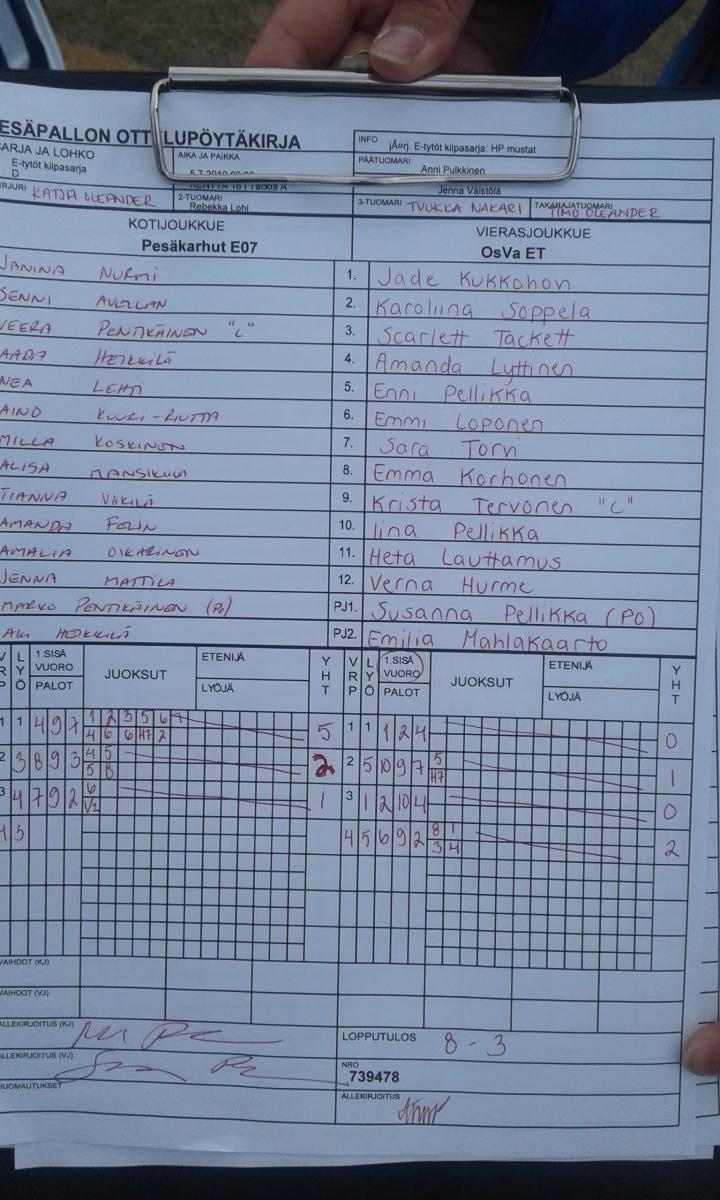 ESÄPALLON OTTELUPÖYTÄKIRJA
SARJA JA LOHKO
E-tytöt kilpasarja
D
AIKA JA PAIKKA
INFO jÃ¤rj. E-tytöt kilpasarja: HP mustat
PÄÄTUOMARI
Anni Pulkkinen
Jenna Väistölä
IRJURI KATJA OLEANDER
2-TUOMARI
Rebekka Lohi
3-TUOMARI TUUKKA NAKARI
TAKARAJATUOMARI
TIMO OLEANDER
KOTIJOUKKUE
Pesäkarhut E07
VIERASJOUKKUE
OsVa ET
JANINA NURMI 1. Jade Kukkohon
SENNI 2. Karoliina Soppela
VEERA PENTIKÄINEN "C" 3. Scarlett Tackett
AADA HEIKKILÄ 4. Amanda Lyttinen
NEA LEHTI 5. Enni Pellikka
AINO KUURI-RIUTTA 6. Emmi Loponen
MILLA KOSKINEN 7. Sara Torvi
ALISA 8. Emma Korhonen
TIANNA 9. Krista Tervonen "C"
AMANDA FOLIN 10. Iina Pellikka
AMALIA OIKARINEN 11. Heta Lauttamus
JENNA MATTILA 12. Verna Hurme
MARKO PENTIKÄINEN (PO) PJ1. Susanna Pellikka (PO)
HEIKKILÄ PJ2. Emilia Mahlakaarto
VRP LYÖ 1.SISÄ VUORO PALOT JUOKSUT ETENIJÄ LYÖJÄ YHT VRP LYÖ 1.SISÄ VUORO PALOT JUOKSUT ETENIJÄ LYÖJÄ YHT
1 1 4 9 7 1 2 3 5 6 7 5 1 1 1 2 4 0
4 6 6 H7 2
2 3 8 9 3 4 5 2 2 5 10 9 7 5 1
5 8 H7
3 4 7 9 2 6 1 3 1 2 10 4 0
V2
4 3 4 5 6 9 2 8 1 2
3 4
VAIHDOT (KJ)
VAIHDOT (VJ)
ALLEKIRJOITUS (KJ)
LOPPUTULOS 8 - 3
ALLEKIRJOITUS (VJ)
NRO
739478
HUOMAUTUKSET
ALLEKIRJOITUS